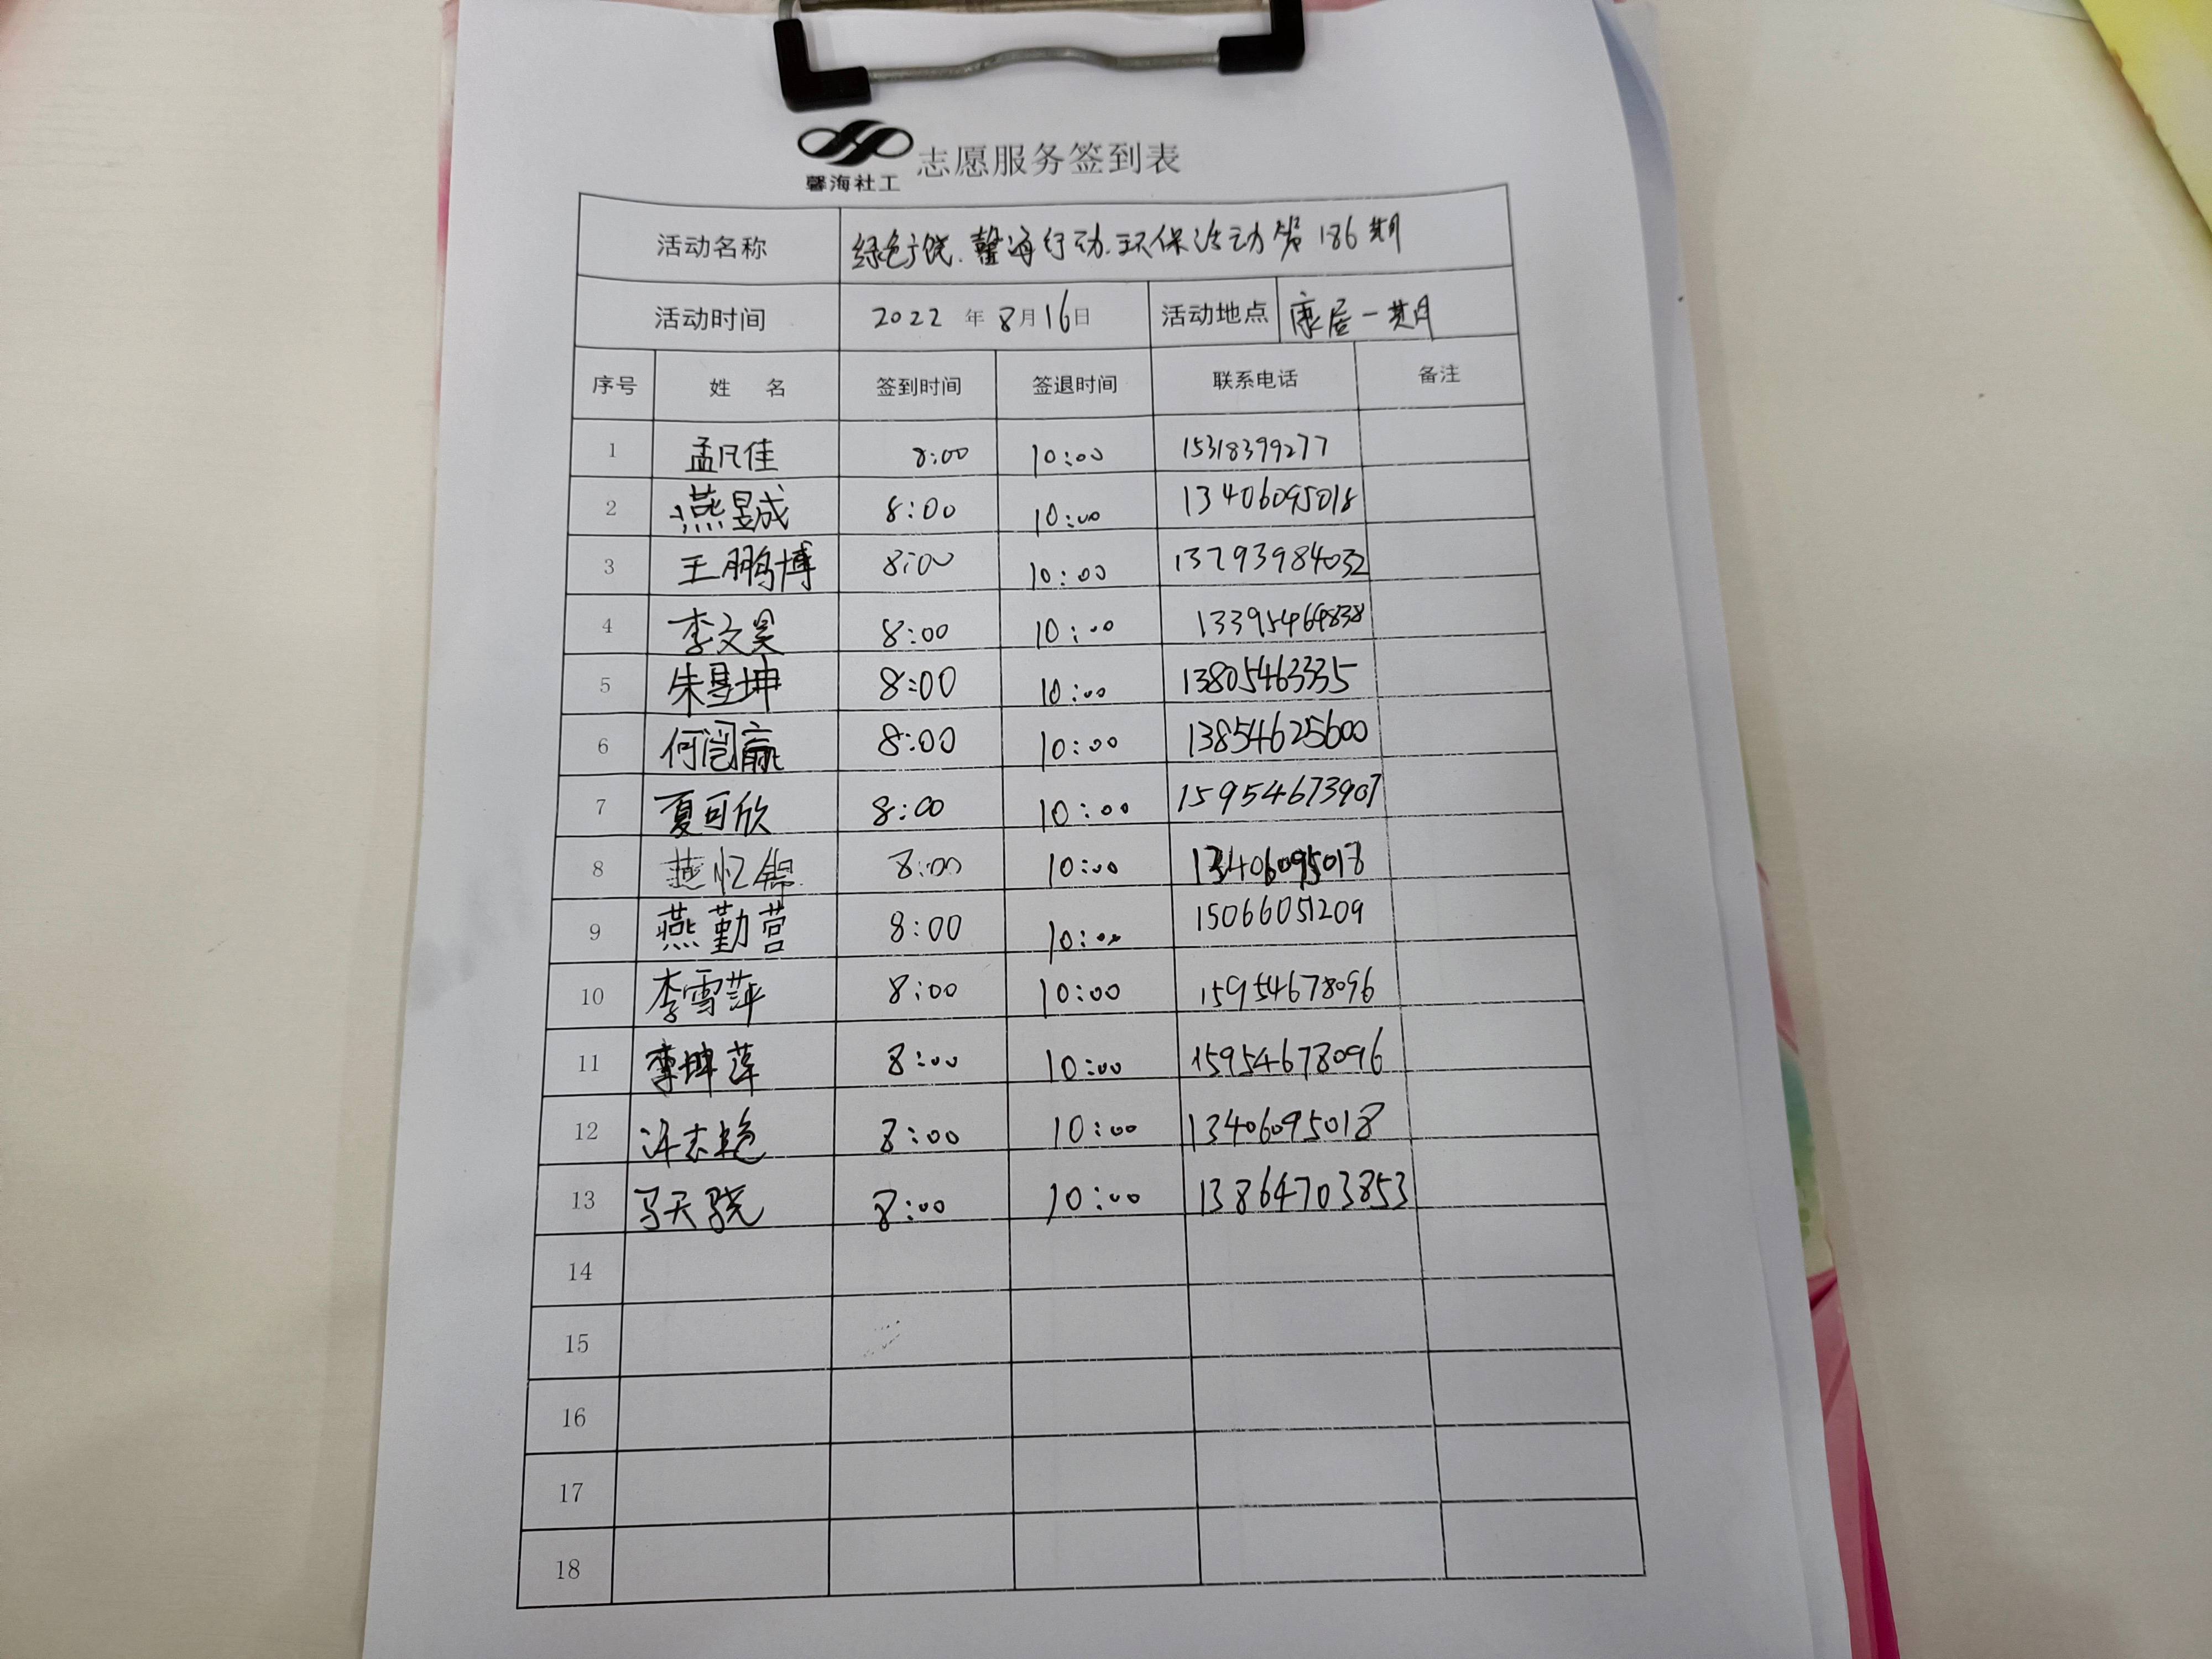 馨海社工
志愿服务签到表
活动名称 绿色广饶.馨海行动.环保活动第186期
活动时间 2022年8月16日 活动地点 康居一期
序号 姓 名 签到时间 签退时间 联系电话 备注
1 孟凡佳 8:00 10:00 15318399277
2 燕昱成 8:00 10:00 13406095018
3 王鹏博 8:00 10:00 13793984032
4 李文昊 8:00 10:00 13395464838
5 朱昱坤 8:00 10:00 13805463335
6 何闿赢 8:00 10:00 13854625600
7 夏可欣 8:00 10:00 15954673907
8 燕忆锦 8:00 10:00 13406095018
9 燕勤营 8:00 10:00 15066051209
10 李雪萍 8:00 10:00 15954678096
11 李坤莲 8:00 10:00 15954678096
12 许志艳 8:00 10:00 13406095018
13 马天骁 8:00 10:00 13864703853
14
15
16
17
18